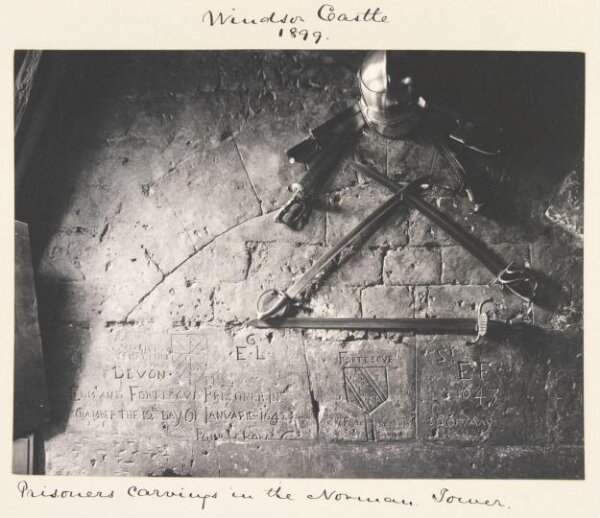 Windsor Castle
1899.
G
E L
DEVON
FORTESCVE PRISONER IN
CHAMBER THE 12 DAY OF IANVARIE 1642
FORTESCVE
ST
E F
1643
Prisoners carvings in the Norman Tower.